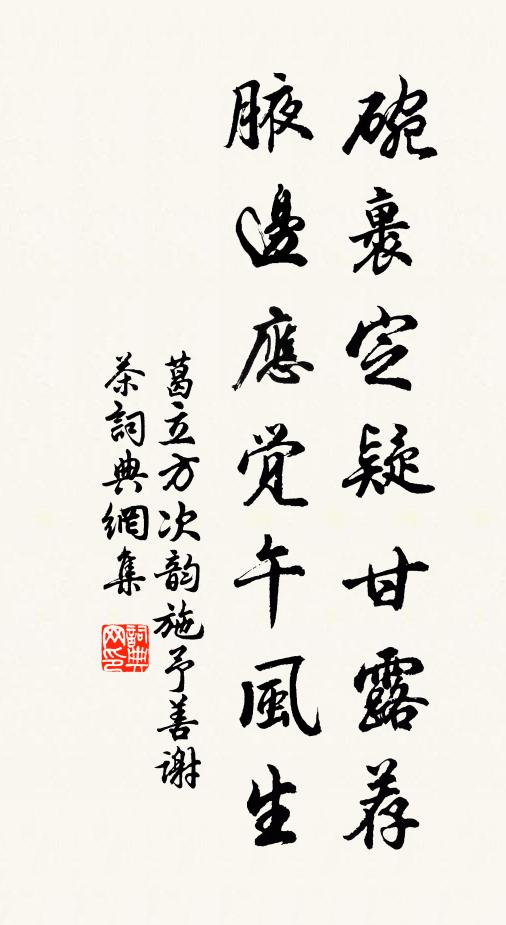 碗裹定疑甘露荐
腋邊應覺午風生
葛立方次韵施予善謝
茶詞典網集
詞典网印